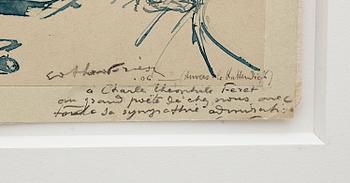 Othon Friesz
.06 (Anvers
à Charles Théophile Feret
au grand poète de chez nous avec
toute sa sympathie